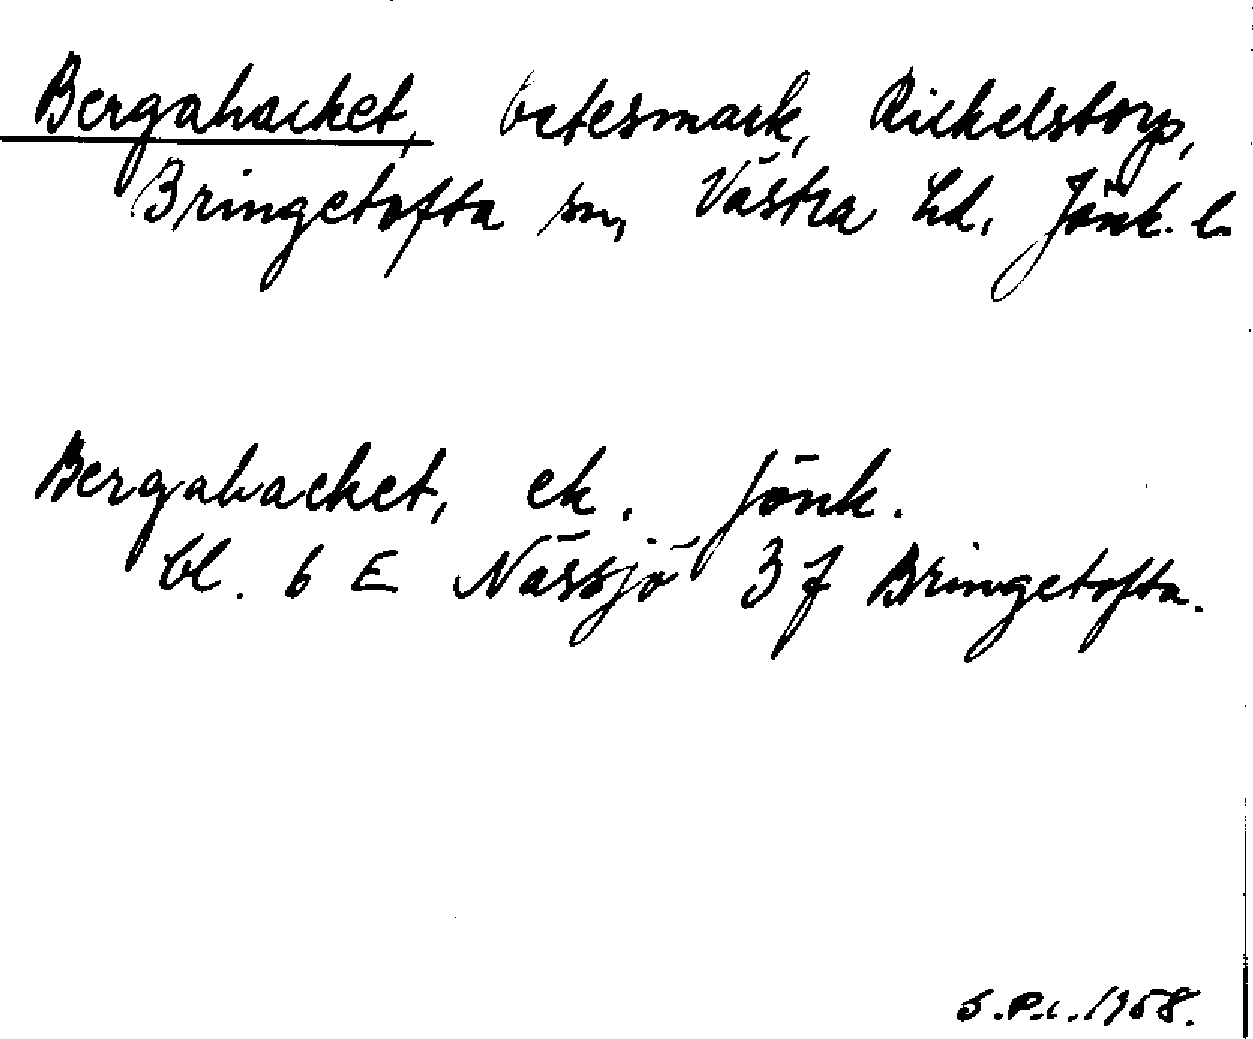 Bergahacket, betesmark, Rickelstorp,
Bringetofta sn, Västra hd, Jönk. l.
Bergahacket, ek. Jönk.
bl. 6 E Nässjö 3 f Bringetofta.
1958.